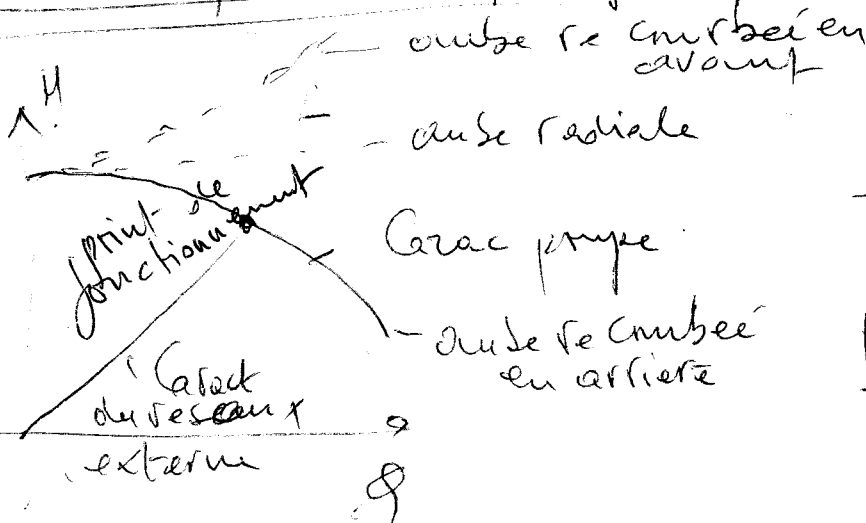 aube recourbeé en
avant
H
aube radiale
Point de
fonctionnement
Carac pompe
aube recoubeé
en arriere
Caract
du reseau
externe
Q